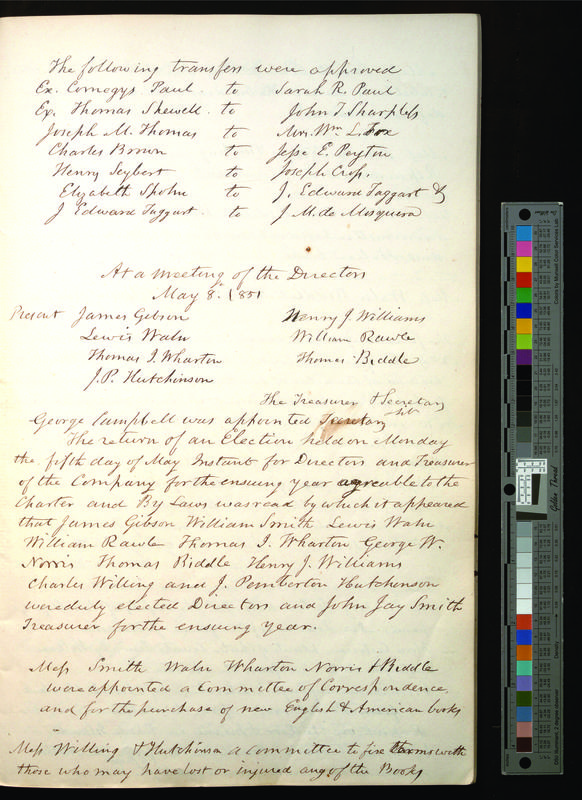 The following transfers were approved
Ex. Comegys Paul to Sarah R. Paul
Ex. Thomas Skewell to John T Sharpless
Joseph M. Thomas to Mrs. Wm. L. Fox
Charles Brown to Jesse E. Peyton
Henry Seybert to Joseph Cross.
Elizabeth Spohn to J. Edward Taggart &
J Edward Taggart to J M. de Mosquera
At a Meeting of the Directors
May 8. 1851
Present James Gibson Henry J. Williams
Lewis Waln William Rawle
Thomas I. Wharton Thomas Biddle
J. P. Hutchinson
The Treasurer & Secretary
George Campbell was appointed Secretary
The return of an Election held on Monday
the fifth day of May Instant for Directors and Treasurer
of the Company for the ensuing year agreable to the
Charter and By Laws was read by which it appeared
that James Gibson William Smith Lewis Waln
William Rawle Thomas I. Wharton George W.
Norris Thomas Biddle Henry J. Williams
Charles Willing and J. Pemberton Hutchinson
were duly elected Directors and John Jay Smith
Treasurer for the ensuing year.
Mess Smith Waln Wharton Norris & Biddle
were appointed a Committee of Correspondence,
and for the purchase of new English & American books
Mess Willing & Hutchinson a Committee to fix terms with
those who may have lost or injured any of the Books
Golden Thread